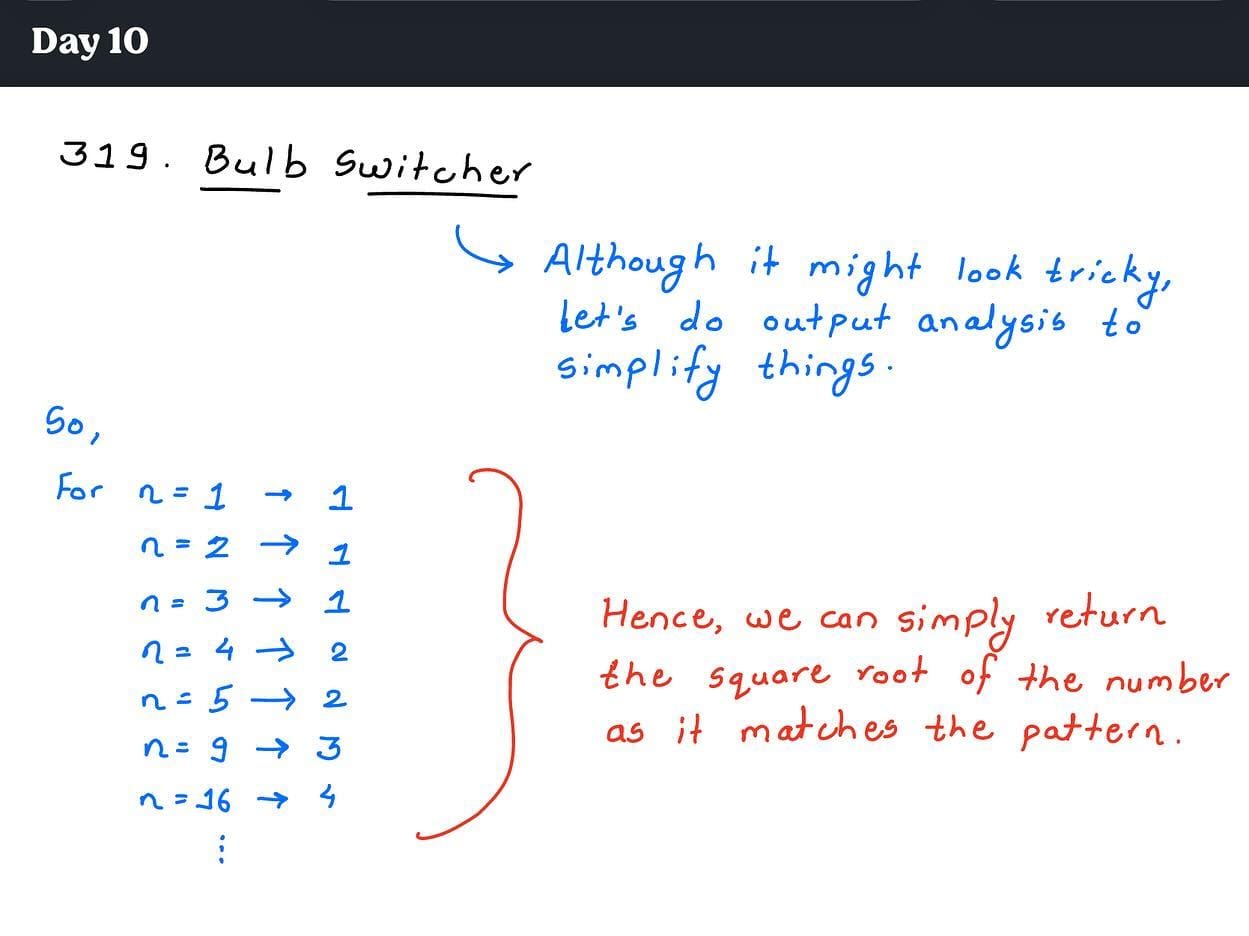 Day 10
319. Bulb Switcher
Although it might look tricky,
let's do output analysis to
simplify things.
So,
For n = 1 → 1
n = 2 → 1
n = 3 → 1
n = 4 → 2
n = 5 → 2
n = 9 → 3
n = 16 → 4
⋮
Hence, we can simply return
the square root of the number
as it matches the pattern.